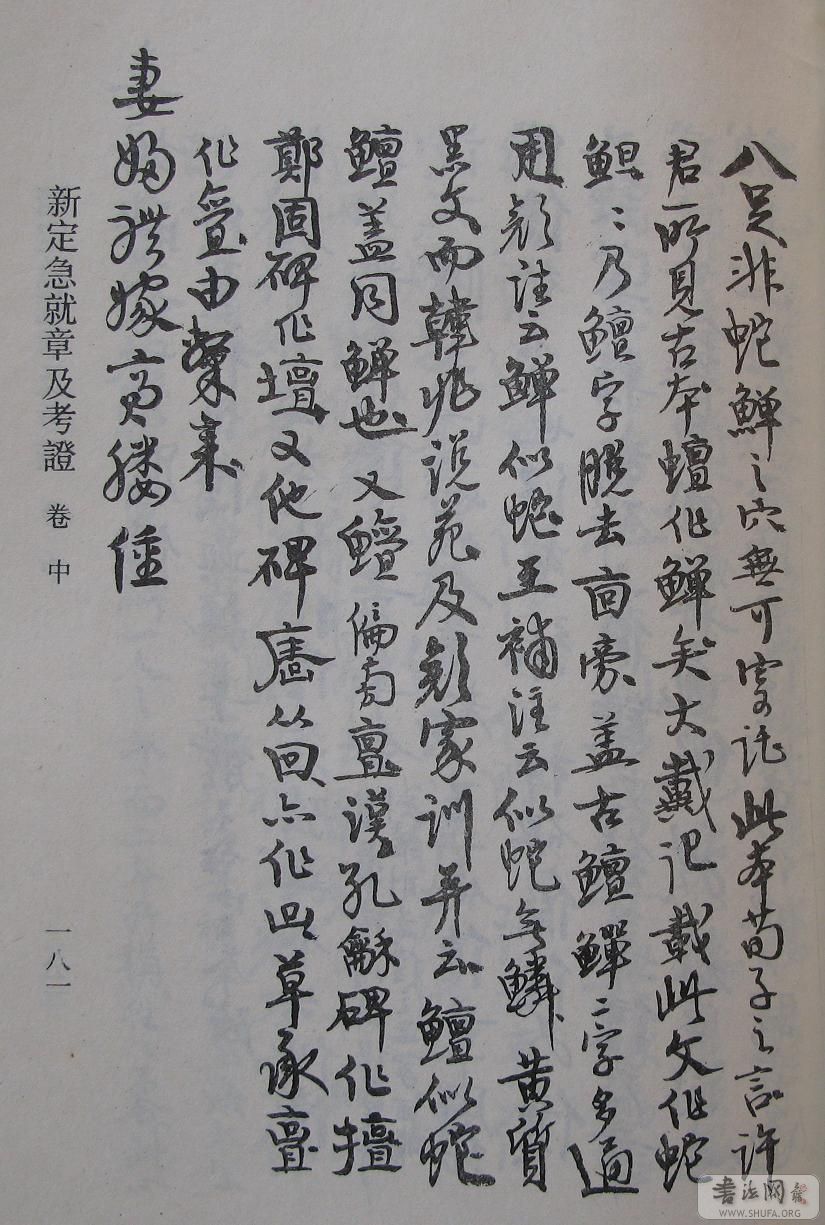 八足非蛇鱓之穴無可寄託此本荀子之言許
君所見古本蟺作鱓矣大戴記載此文作蛇
䱇䱇乃鱣字脫去㐭旁蓋古鱣鱓二字多通
用顏注云鱓似蛇王補注云似蛇無鱗黃質
黑文而韓非說苑及顏家訓并云鱣似蛇
鱣蓋同鱓也又鱣偏旁亶漢孔龢碑作擅
鄭固碑作壇又他碑廩从回亦作囬草承亶
作
妻婦禮嫁賣媵僮
新定急就章及考證 卷中
一八一
書法網
WWW.SHUFA.ORG